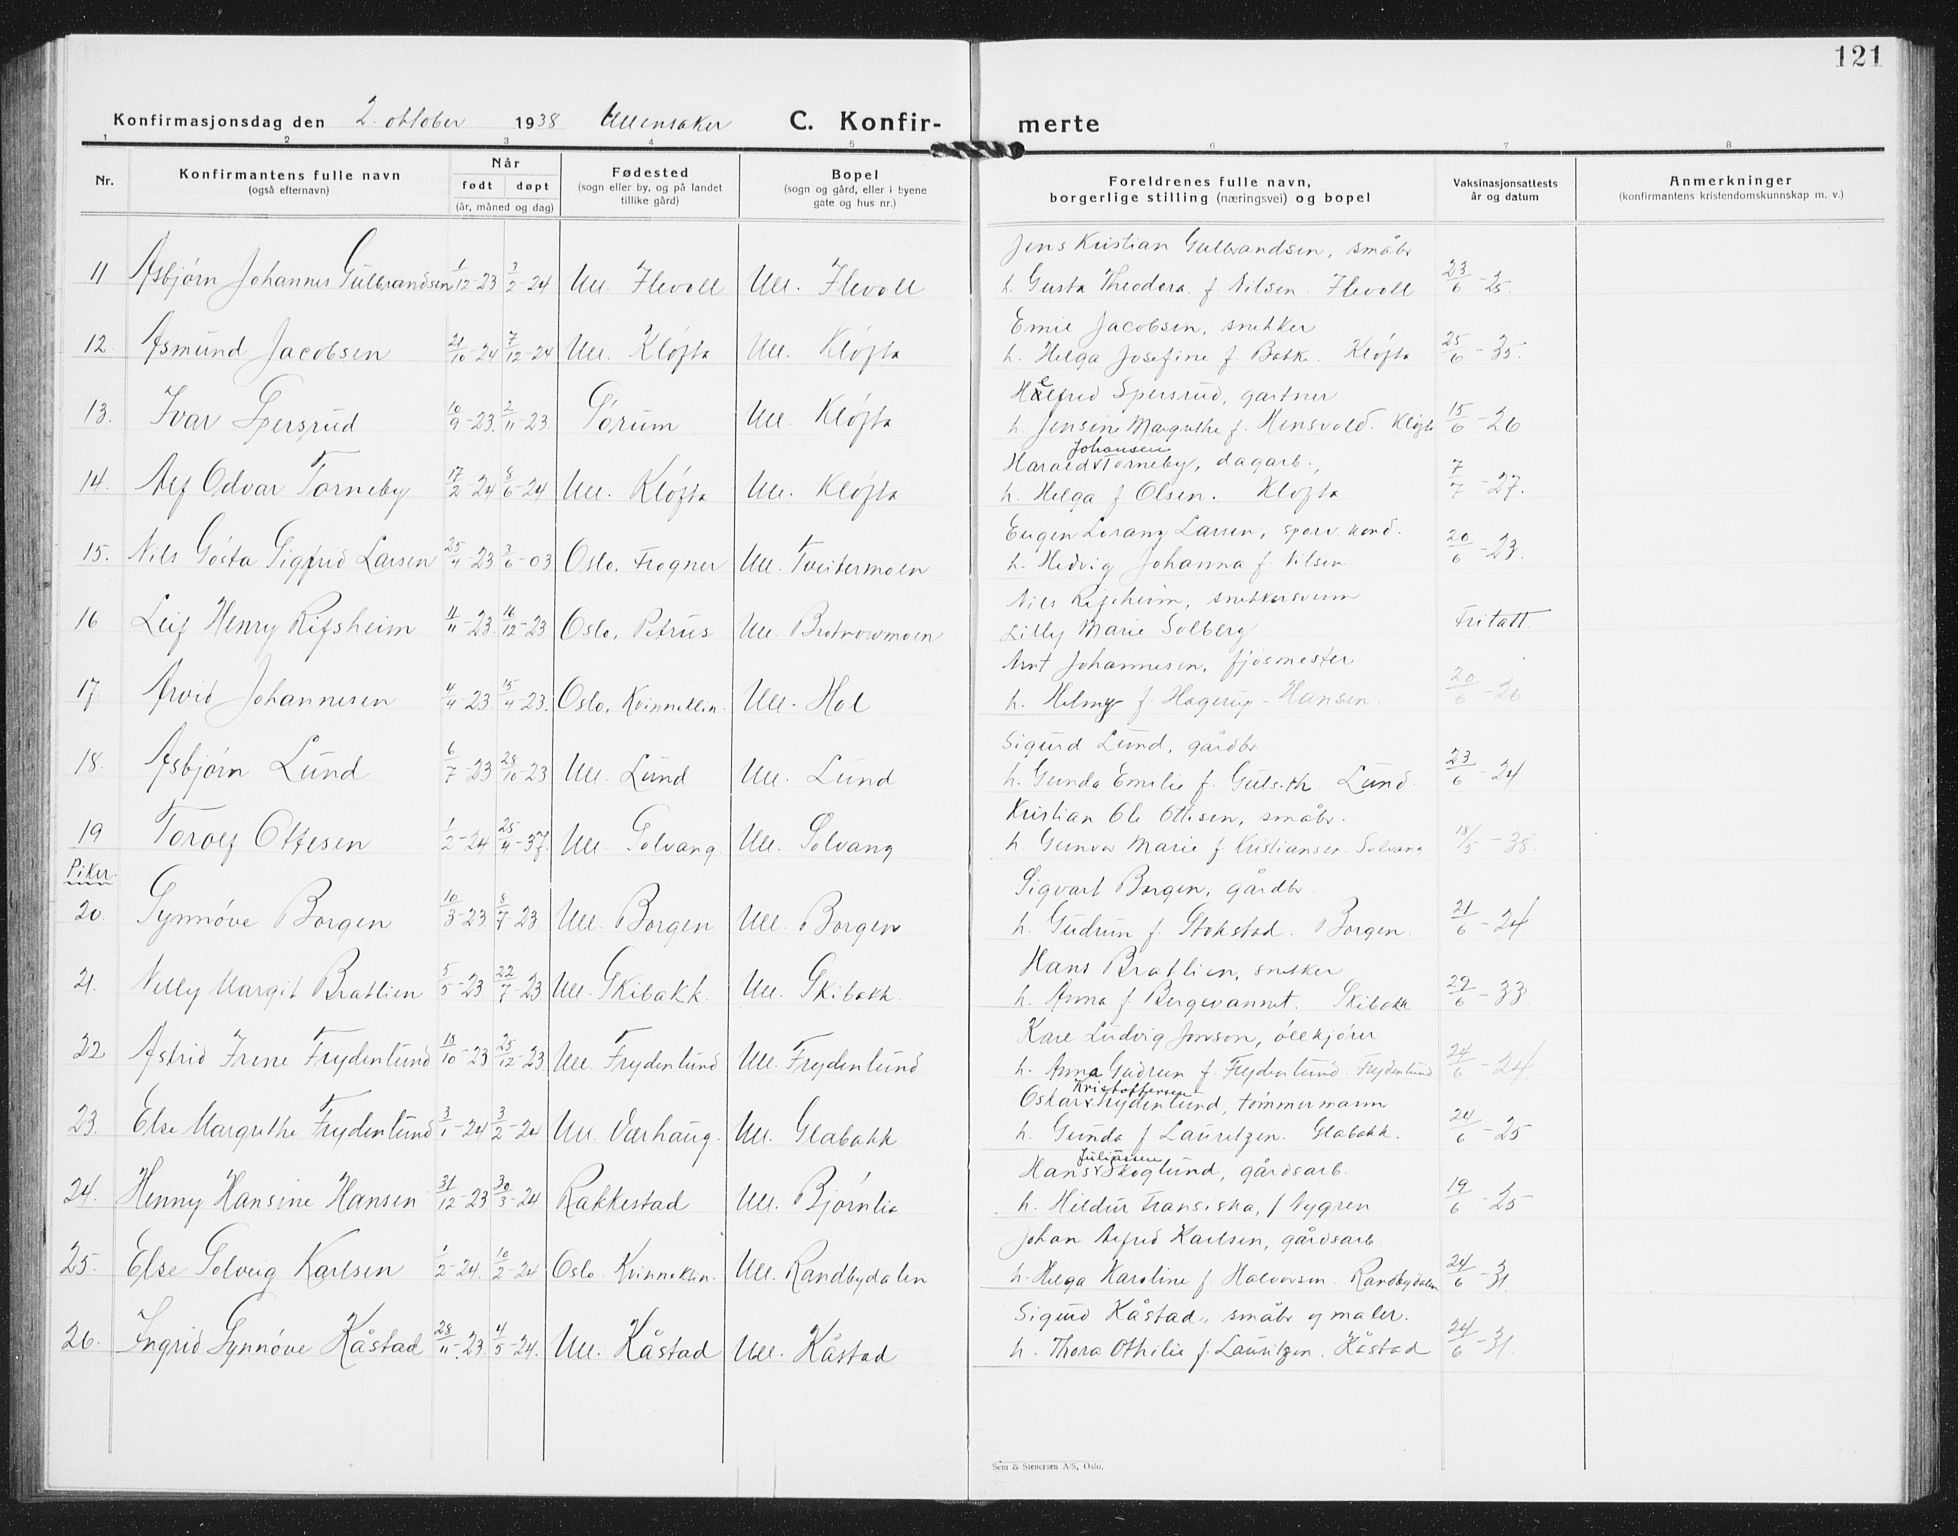 121
Konfirmasjonsdag den 2. oktober 1938 Ullensaker C. Konfir- merte
1 2 3 4 5 6 7 8
Nr. Konfirmantens fulle navn (også efternavn) Når født døpt (år, måned og dag) Fødested (sogn eller by, og på landet tillike gård) Bopel (sogn og gård, eller i byene gate og hus nr.) Foreldrenes fulle navn, borgerlige stilling (næringsvei) og bopel Vaksinasjonsattests år og datum Anmerkninger (konfirmantens kristendomskunnskap m. v.)
Jens Kristian Gulbrandsen, småbr.
11 Asbjørn Johannes Gulbrandsen 1/12-23 3/2-24 Ull. Flevoll Ull. Flevoll h. Gusta Theodora f. Nilsen. Flevoll 23/6-25.
Emil Jacobsen, snekker
12. Asmund Jacobsen 21/10-24 7/12-24 Ull. Kløfta Ull. Kløfta h. Helga Josefine f. Bakk. Kløfta 25/6-35.
Helfred Spersrud, gartner
13. Ivar Spersrud 10/9-23. 2/11-23. Sørum Ull. Kløfta h. Jensine Margrethe f. Hensvold. Kløfta 15/6-26
Johansen
Harald v Torneby, dagarb.,
14. Alf Odvar Torneby 17/2-24 8/6-24 Ull. Kløfta Ull. Kløfta h. Helga f. Olsen. Kløfta 7/7-27.
Eugen Lorang Larsen, sporv. kond.
15. Nils Gösta Sigfrid Larsen 25/4-23 3/6-03 Oslo, Frogner Ull. Tveitermoen h. Hedvig Johanna f. Nilsen 20/6-23.
Nils Rifsheim, snekkersvenn
16 Leif Henry Rifsheim 11/11-23. 16/12-23 Oslo, Petrus Ull. Lilly Marie Solberg Fritatt.
Arnt Johannesen, fjøsmester
17. Arvid Johannesen 4/4-23. 15/4-23. Oslo, Kvinneklin. Ull. Hol h. Helmy f. Hagerup-Hansen. 20/6-26
Sigurd Lund, gårdbr.
18. Asbjørn Lund 6/7-23 28/10-23 Ull. Lund Ull. Lund h. Gunda Emilie f. Lund. 23/6-24
Kristian Ole Ottesen, småbr.
19 Torolf Ottesen 1/2-24 25/4-37. Ull. Solvang Ull. Solvang h. Gunvor Marie f. Kristiansen. Solvang 18/5-38.
Piker.
Sigvart Borgen, gårdbr.
20. Synnøve Borgen 10/3-23 8/7-23. Ull. Borgen Ull. Borgen h. Gudrun f. Stokstad. Borgen. 21/6-24
Hans Bratlien, snekker
21. Nelly Margit Bratlien 5/5-23 22/7-23 Ull. Skibakk. Ull. Skibakk. h. Anna f. Bergevannet. Skibakk 29/6-33.
Kare Ludvig Jonson, ølkjører
22 Astrid Irene Frydenlund 13/10-23 25/12-23 Ull. Frydenlund Ull. Frydenlund h. Anna Gudrun f. Frydenlund. Frydenlund 24/6-24
Kristoffersen
Oskar v Frydenlund, tømmermann
23. Else Margrethe Frydenlund 3/1-24 3/2-24 Ull. Værhaug. Ull. Glabakk h. Gunda f. Lauritzen. Glabakk. 24/6-25
Juliussen
Hans v Skoglund, gårdsarb.
24. Henny Hansine Hansen 31/12-23 30/3-24 Rakkestad Ull. Bjørnlia h. Hildur Fransiska, f Nygren 19/6-25
Johan Alfred Karlsen, gårdsarb.
25. Else Solveig Karlsen 1/2-24. 10/2-24 Oslo. Kvinneklin. Ull. Randbydalen h. Helga Karoline f. Halvorsen. Randbydalen 24/6-31.
Sigurd Kåstad, småbr og maler.
26. Ingrid Synnøve Kåstad 28/11-23. 4/5-24. Ull. Kåstad Ull. Kåstad h. Thora Othilie f. Lauritzen. Kåstad 24/6-31.
Sem & Stenersen A/S, Oslo.